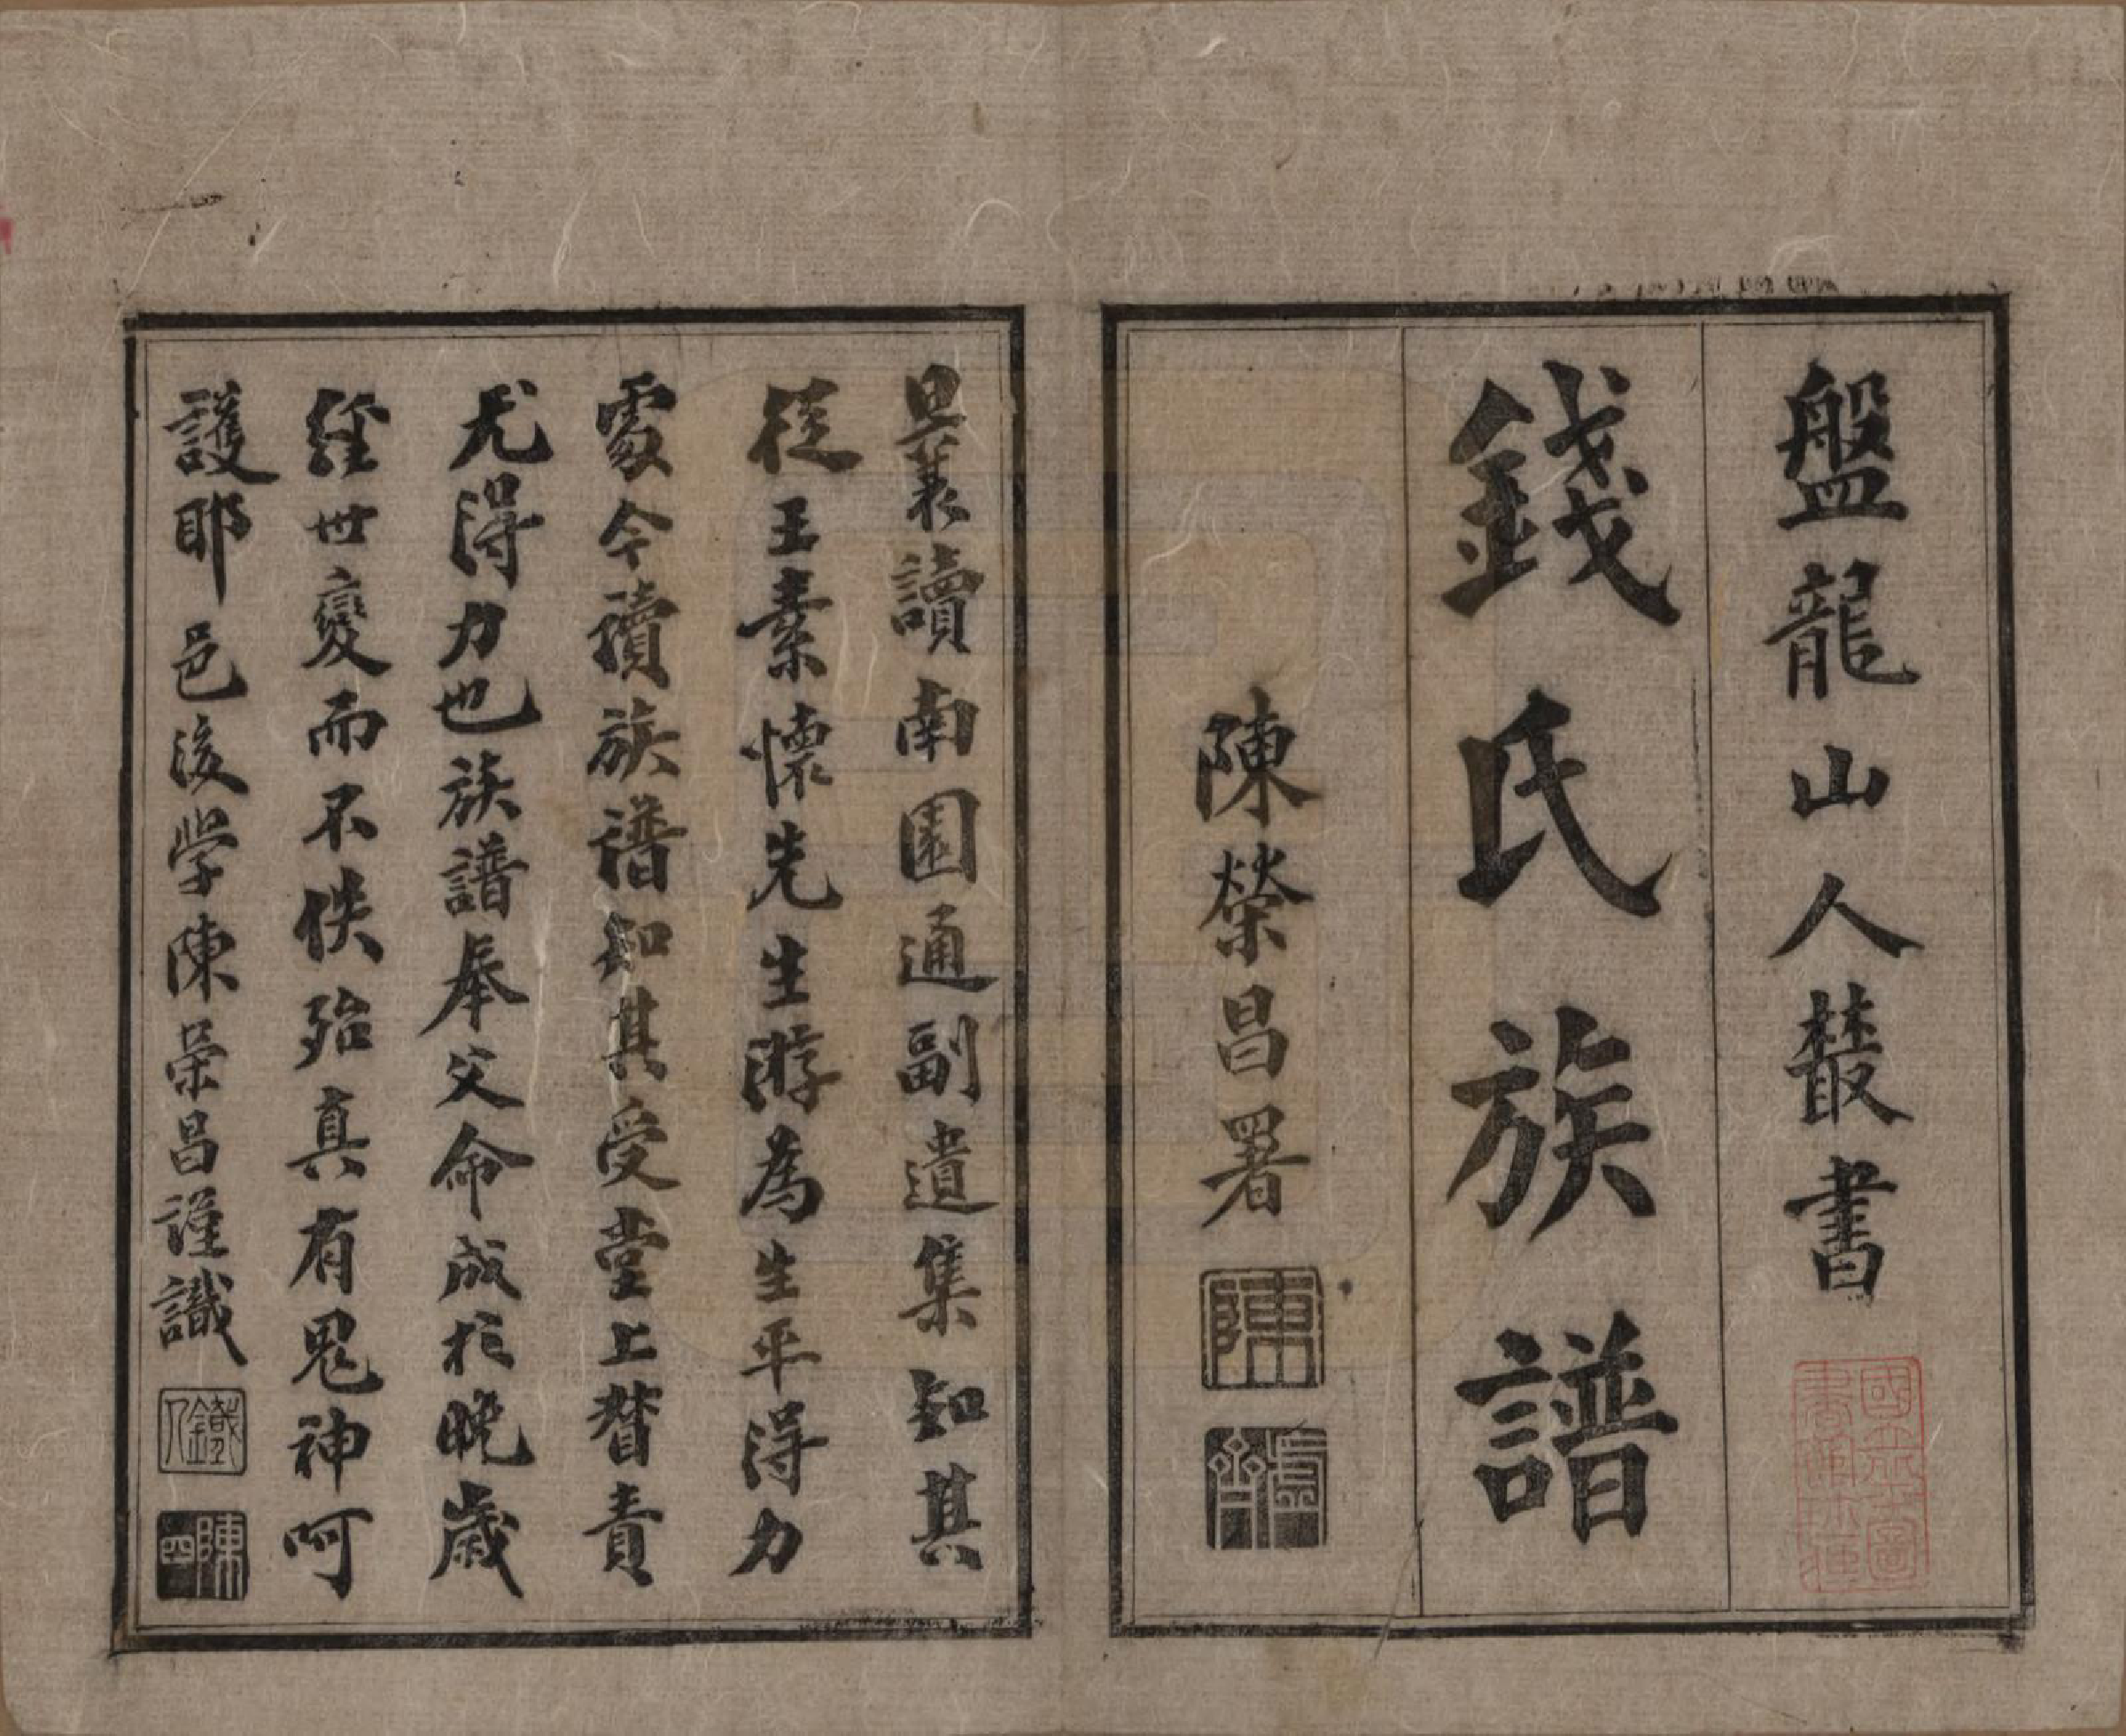 盤龍山人叢書
錢氏族譜
陳榮昌署
陳
國立北平圖書館收藏
曩讀南園通副遺集知其
從王素懷先生游為生平得力
處今讀族譜知其受堂上督責
尤得力也族譜奉父命成於晚歲
經世變而不佚殆真有鬼神呵
護耶 邑後學陳榮昌謹識
鐵人
陳四